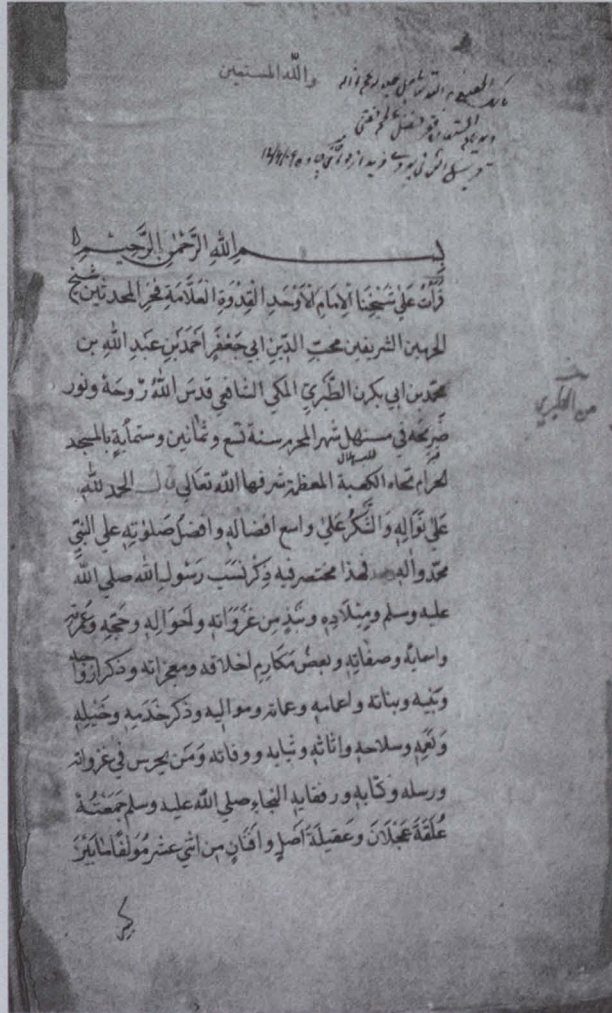 والله المستعين
بسم الله الرحمن الرحيم
قرأت على شيخنا الامام الاوحد القدوة العلامة فخر المحدثين شيخ
الحرمين الشريفين محب الدين ابي جعفر احمد بن عبد الله بن
محمد بن ابي بكر بن الطبري المكي الشافعي قدس الله روحه ونور
ضريحه في مستهل شهر المحرم سنة تسع وثمانين وستماية بالمسجد
الحرام تجاه الكعبة المعظمة شرفها الله تعالى قال الحمد لله
على نواله والشكر على واسع افضاله وافضل صلوته علي النبي
محمد واله فهذا مختصر فيه ذكر نسب رسول الله صلي الله
عليه وسلم وميلاده ونبذ من غزواته واحواله وحجته وعمرته
واسمايه وصفاته وبعض مكارم اخلاقه ومعجزاته وذكر ازواجه
وبنيه وبناته واعمامه وعماته ومواليه وذكر خدمه وخيله
ونعمه وسلاحه واثاثه وثيابه ووفاته ومن يحرس في غزواته
ورسله وكتابه ورفقايه النجباء صلي الله عليه وسلم جمعته
علقة عجلان وعقيلة اصل وافنان من اثني عشر مولفا ما بين
من الطبري